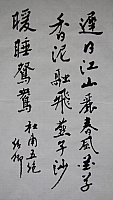 遲日江山麗春風花草
香泥融飛燕子沙
暖睡鴛鴦
杜甫五絕